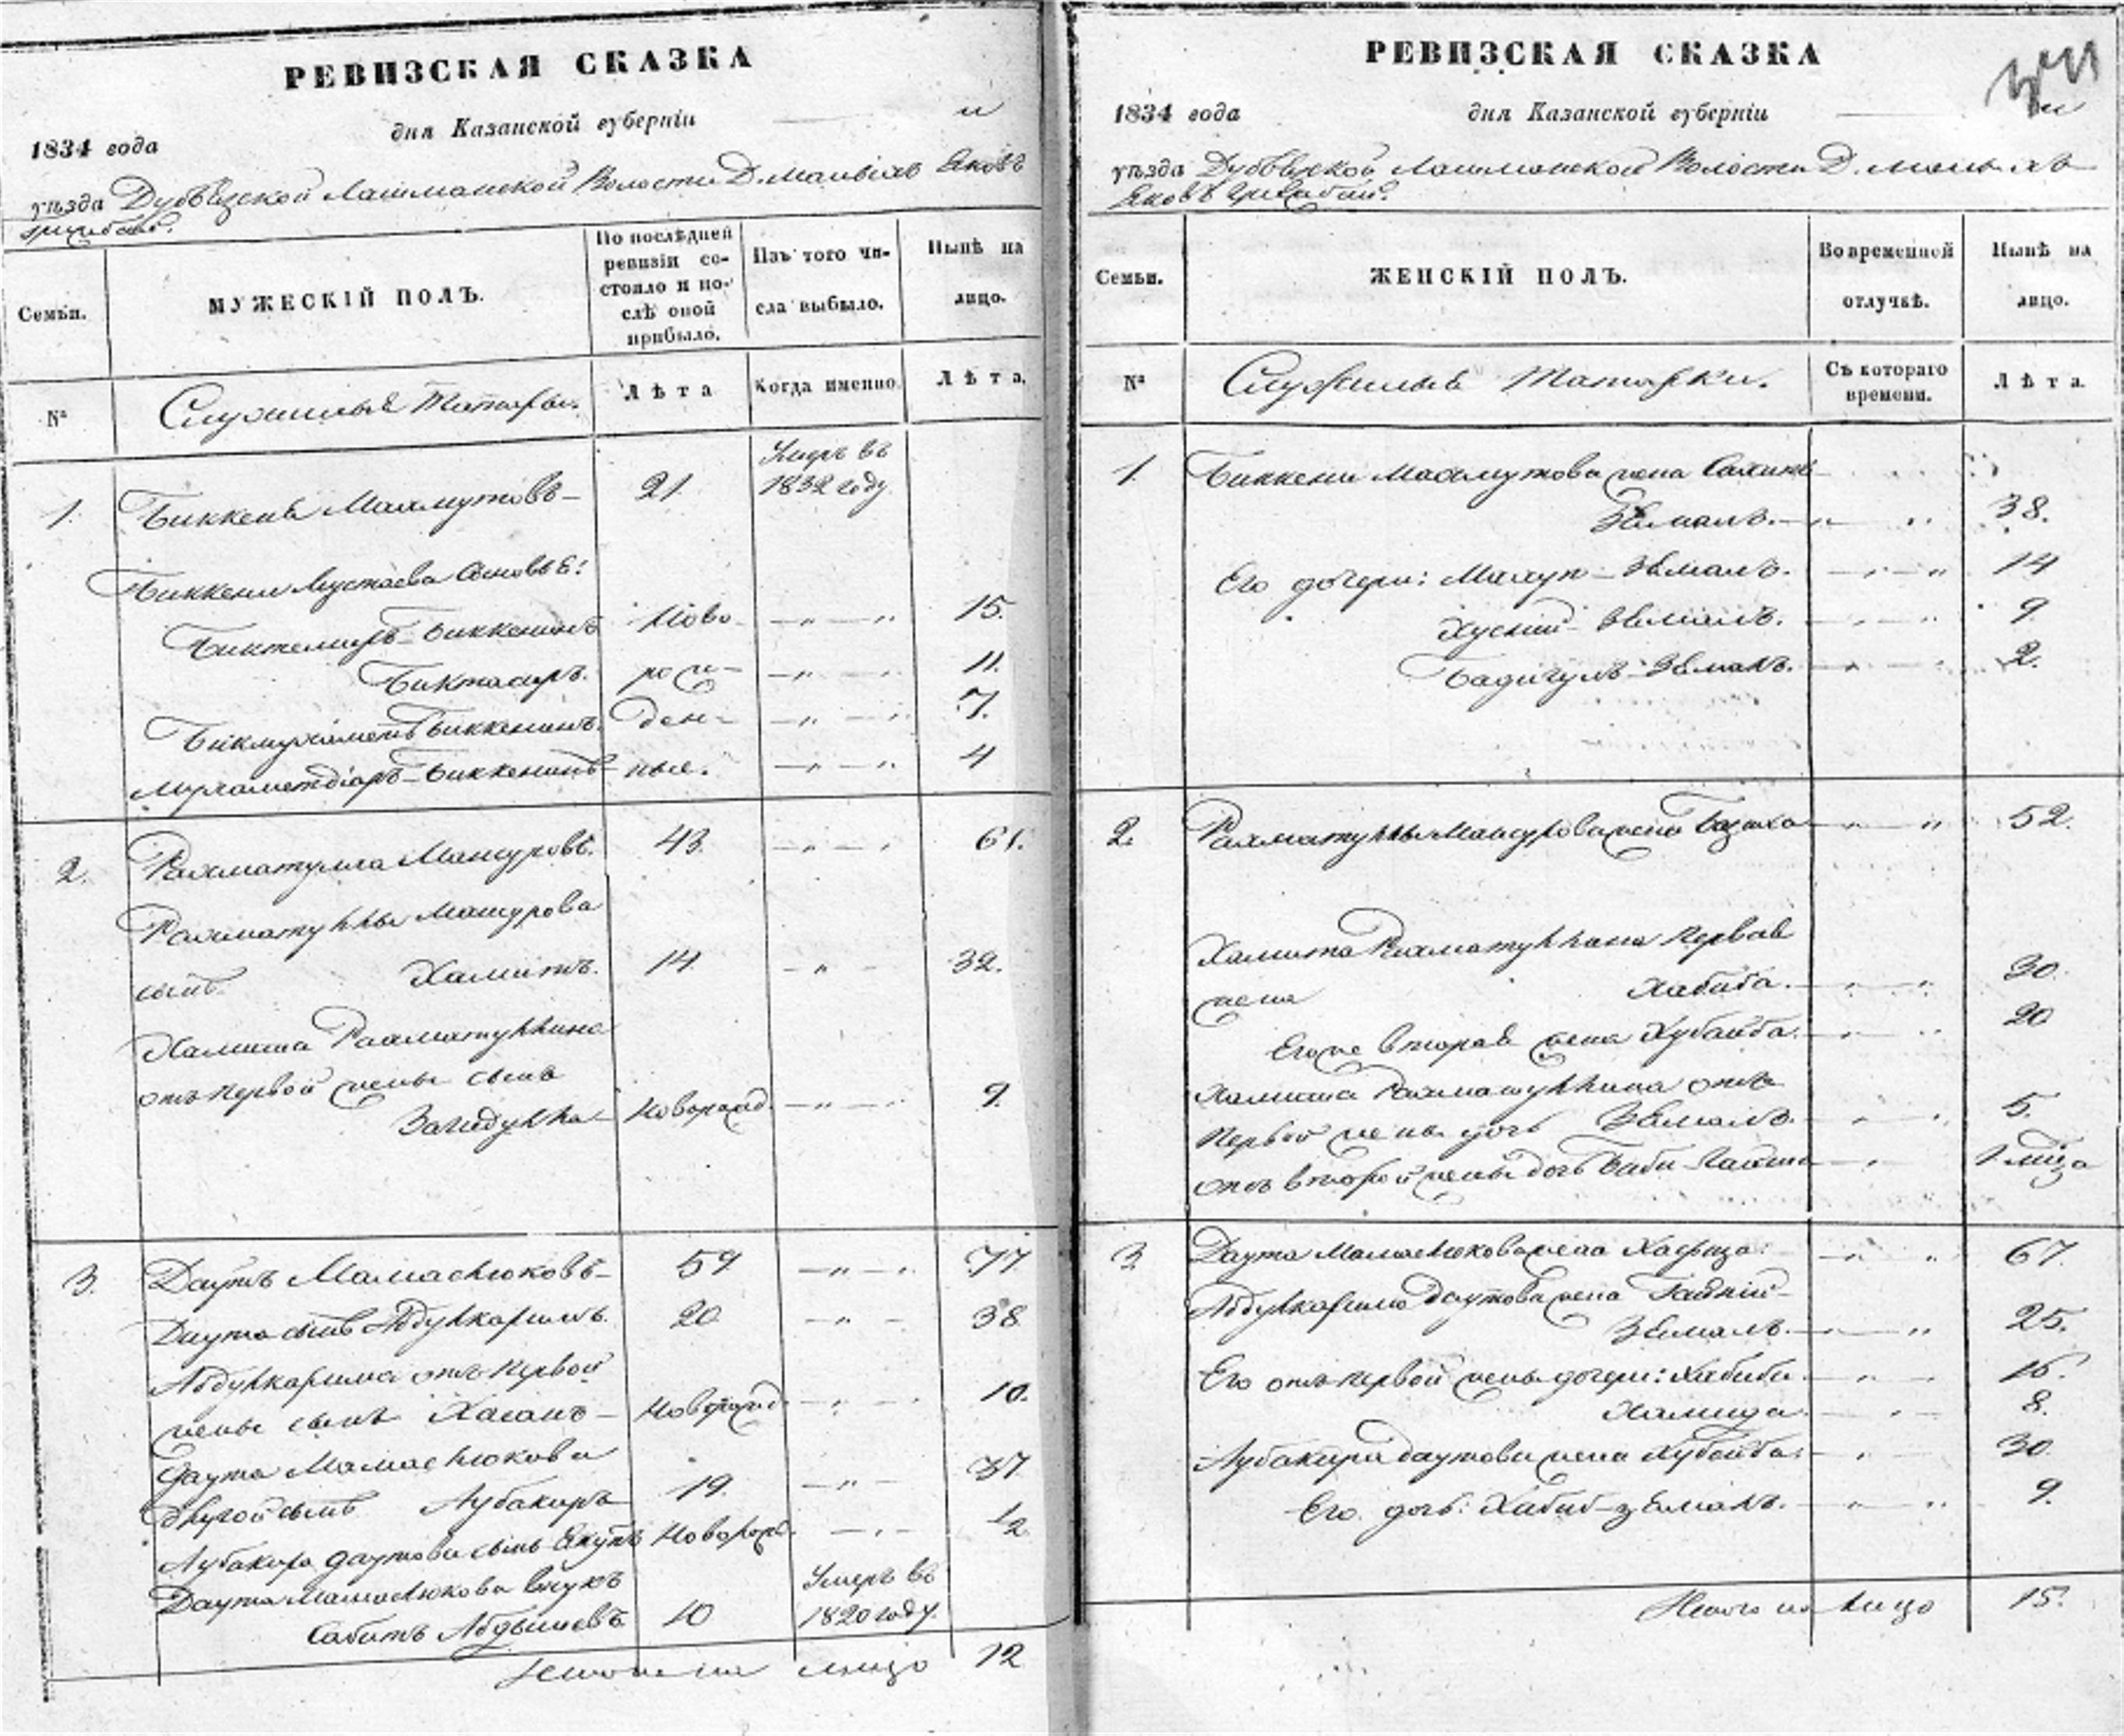 РЕВИЗСКАЯ СКАЗКА
1834 года
дня Казанской губерніи
и
уѣзда Лашманской Волости Д.
Семьи.
МУЖЕСКІЙ ПОЛЪ.
По послѣдней ревизіи состояло и послѣ оной прибыло.
Изъ того числа выбыло.
Нынѣ на лицо.
№
Служилыя Татары.
Лѣта
Когда именно
Лѣта.
1. Биккеня Махмутовъ 21 Умеръ въ 1832 году
Биккени сыновьѣ:
Биктемиръ Биккенинъ Ново 15.
рож 11.
Бикмухаметъ Биккенинъ. ден 7.
Мухаметдіаръ Биккенинъ ные. 4
2. Рахматулла Мансуровъ. 43. 61.
Рахматуллы Мансурова
сынъ Хамитъ. 14. 32.
Хамита Рахматуллина
отъ первой жены сынъ
Загидулла Новорожд. 9.
3. Даутъ 59 77
Даута сынъ Абдулкаримъ. 20 38
Абдулкарима отъ первой
жены сынъ Хасанъ Новорожд. 10.
Даута
другой сынъ Аубакиръ 19. 37
Аубакира Даутова сынъ Якупъ Новорож. 1/2
Даута внукъ
Сабитъ 10 Умеръ въ 1820 году.
Итого на лицо 12
РЕВИЗСКАЯ СКАЗКА
1834 года
дня Казанской губерніи
и
уѣзда Лашманской Волости Д.
Семьи.
ЖЕНСКІЙ ПОЛЪ.
Во временной отлучкѣ.
Нынѣ на лицо.
№
Служилыя Татарки.
Съ котораго времени.
Лѣта
1. Биккени Махмутова жена
Земалъ. 38.
Его дочери: Земалъ. 14
Хусний Земалъ. 9.
Бадигулъ Земалъ. 2.
2. Рахматуллы Мансурова жена 52.
Хамита Рахматуллина первая
жена Хабиба. 30.
Его же вторая жена Хубайба. 20
Хамита Рахматуллина отъ
первой жены дочь Земалъ. 5.
отъ второй жены дочь Биби
3. Даута жена Хафиза. 67.
Абдулкарима Даутова жена
Земалъ. 25.
Его отъ первой жены дочери: Хабиба. 16.
Хамида. 8.
Аубакира Даутова жена Хубайба. 30.
Его дочь: Хабиб-земалъ. 9.
Итого на лицо 15.